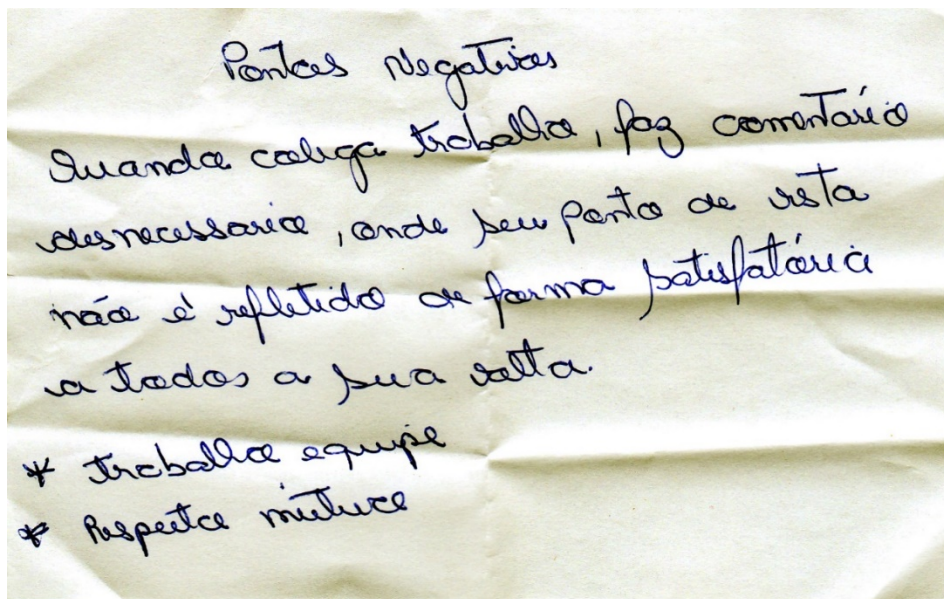 Pontos Negativos
Quando coliga trabalho, faz comentário
desnecessario, onde seu ponto de vista
não é refletido de forma satisfatória
a todos a sua volta.
* trabalho equipe
* Respeito mútuo